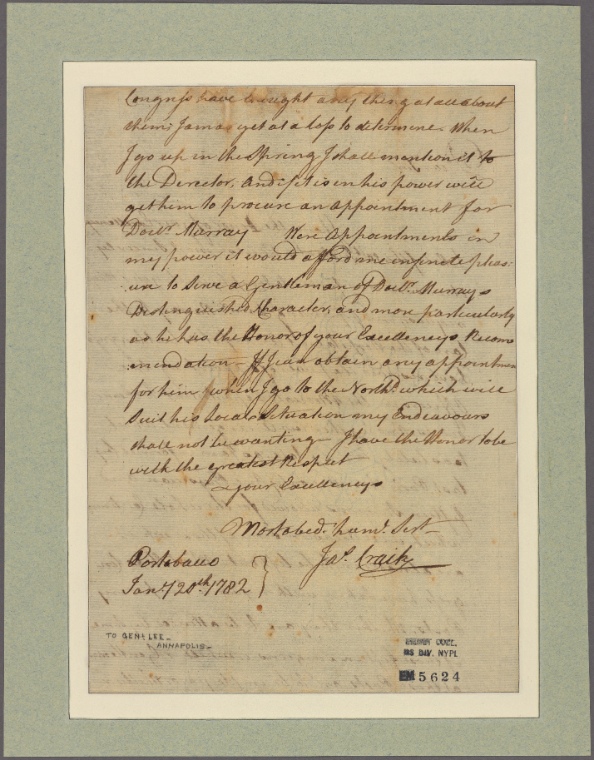 Congress have brought any thing at all about
them I am as yet at a loss to determine. When
I go up in the Spring I shall mention it to
the Derector, and if it is in his power will
get him to procure an appointment for
Doctr. Murray Were Appointments in
my power it would afford me infinite pleas:
ure to Serve a Gentleman of Doctr. Murrays
Destinguished Character, and more particularly
as he has the Honor of your Excellencys Recom
:mendation – If I can obtain any appointment
for him when I go to the Northd. which will
Suit his Local Situation my Endeavours
shall not be wanting – I have the Honor to be
with the greatest Respect
your Excellencys
Most obed. hume. Sert
Jas. Craik
Portobacco
Jany. 20th. 1782
TO GENL LEE.
ANNAPOLIS.
EMMET COLL.
MS DIV. NYPL
EM 5624